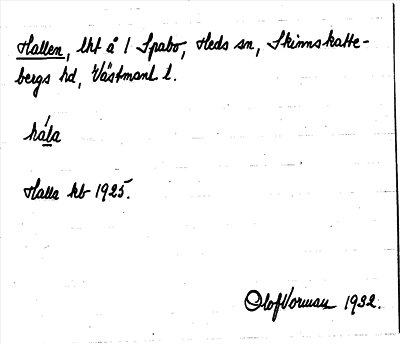 Hallen, lht å 1 Spabo, Heds sn, Skinnskatte-
bergs hd, Västmanl l.
håla
Halla kb 1925.
Olof Vorman 1932.